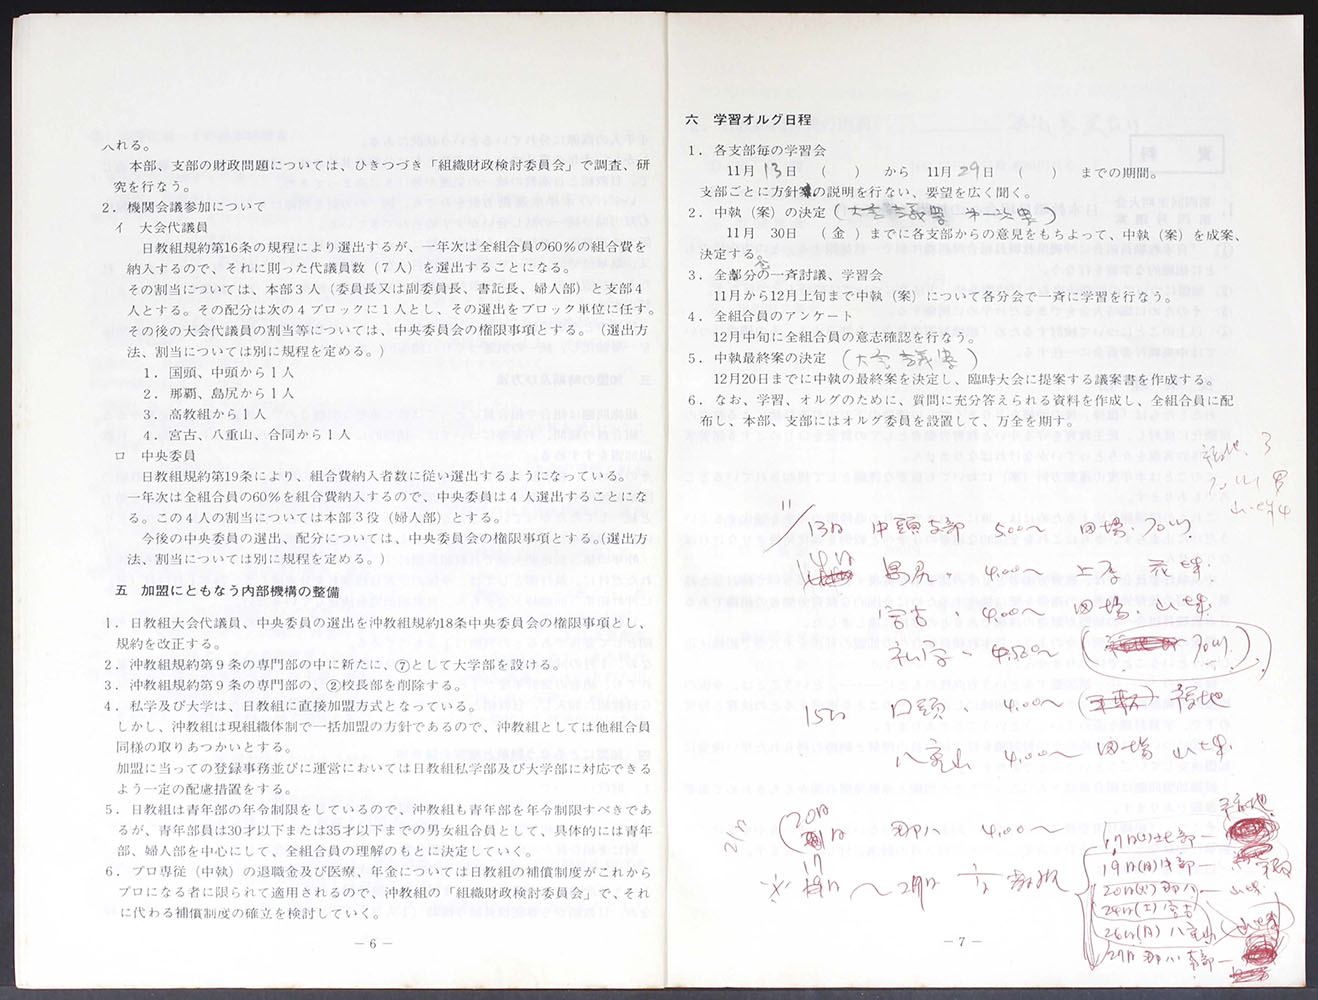 入れる。
本部、支部の財政問題については、ひきつづき「組織財政検討委員会」で調査、研
究を行なう。
2．機関会議参加について
イ　大会代議員
日教組規約第16条の規程により選出するが、一年次は全組合員の60％の組合費を
納入するので、それに則った代議員数（７人）を選出することになる。
その割当については、本部３人（委員長又は副委員長、書記長、婦人部）と支部４
人とする。その配分は次の４ブロックに１人とし、その選出をブロック単位に任す。
その後の大会代議員の割当等については、中央委員会の権限事項とする。（選出方
法、割当については別に規程を定める。）
1．国頭、中頭から１人
2．那覇、島尻から１人
3．高教組から１人
4．宮古、八重山、合同から１人
ロ　中央委員
日教組規約第19条により、組合費納入者数に従い選出するようになっている。
一年次は全組合員の60％を組合費納入するので、中央委員は４人選出することにな
る。この４人の割当については本部３役（婦人部）とする。
今後の中央委員の選出、配分については、中央委員会の権限事項とする。（選出方
法、割当については別に規程を定める。）
五　加盟にともなう内部機構の整備
1．日教組大会代議員、中央委員の選出を沖教組規約18条中央委員会の権限事項とし、
規約を改正する。
2．沖教組規約第９条の専門部の中に新たに、⑦として大学部を設ける。
3．沖教組規約第９条の専門部の、②校長部を削除する。
4．私学及び大学は、日教組に直接加盟方式となっている。
しかし、沖教組は現組織体制で一括加盟の方針であるので、沖教組としては他組合員
同様の取りあつかいとする。
加盟に当っての登録事務並びに運営においては日教組私学部及び大学部に対応できる
よう一定の配慮措置をする。
5．日教組は青年部の年令制限をしているので、沖教組も青年部を年令制限すべきであ
るが、青年部員は30才以下または35才以下までの男女組合員として、具体的には青年
部、婦人部を中心にして、全組合員の理解のもとに決定していく。
6．プロ専従（中執）の退職金及び医療、年金については日教組の補償制度がこれから
プロになる者に限られて適用されるので、沖教組の「組織財政検討委員会」で、それ
に代わる補償制度の確立を検討していく。
― 6 ―
六　学習オルグ日程
1．各支部毎の学習会
11月13日　（　）　から　11月29日　（　）　までの期間。
支部ごとに方針の説明を行ない、要望を広く聞く。
2．中執（案）の決定（大会議案書 第一次案）
11月　30日　（金）までに各支部からの意見をもちよって、中執（案）を成案、
決定する。
3．全部分の一斉討議、学習会
11月から12月上旬まで中執（案）について各分会で一斉に学習を行なう。
4．全組合員のアンケート
12月中旬に全組合員の意志確認を行なう。
5．中執最終案の決定　（大会議案書）
12月20日までに中執の最終案を決定し、臨時大会に提案する議案書を作成する。
6．なお、学習、オルグのために、質問に充分答えられる資料を作成し、全組合員に配
布し、本部、支部にはオルグ委員を設置して、万全を期す。
福地. 3
11/13日　中頭支部　5.00～　田場.
14日　島尻　4.00～　上原
宮古　4.00～　田場. 山城.
4.30～
15日　国頭　4.00～　福地
八重山　4.00～　田場　山城.
20日　那八　4.00～
17日(土)北部―
19日(月)中部―
20日(火)那八―山城.
24日(土)宮古
26日(月)八重山　山城
27日 那八 南部―
― 7 ―